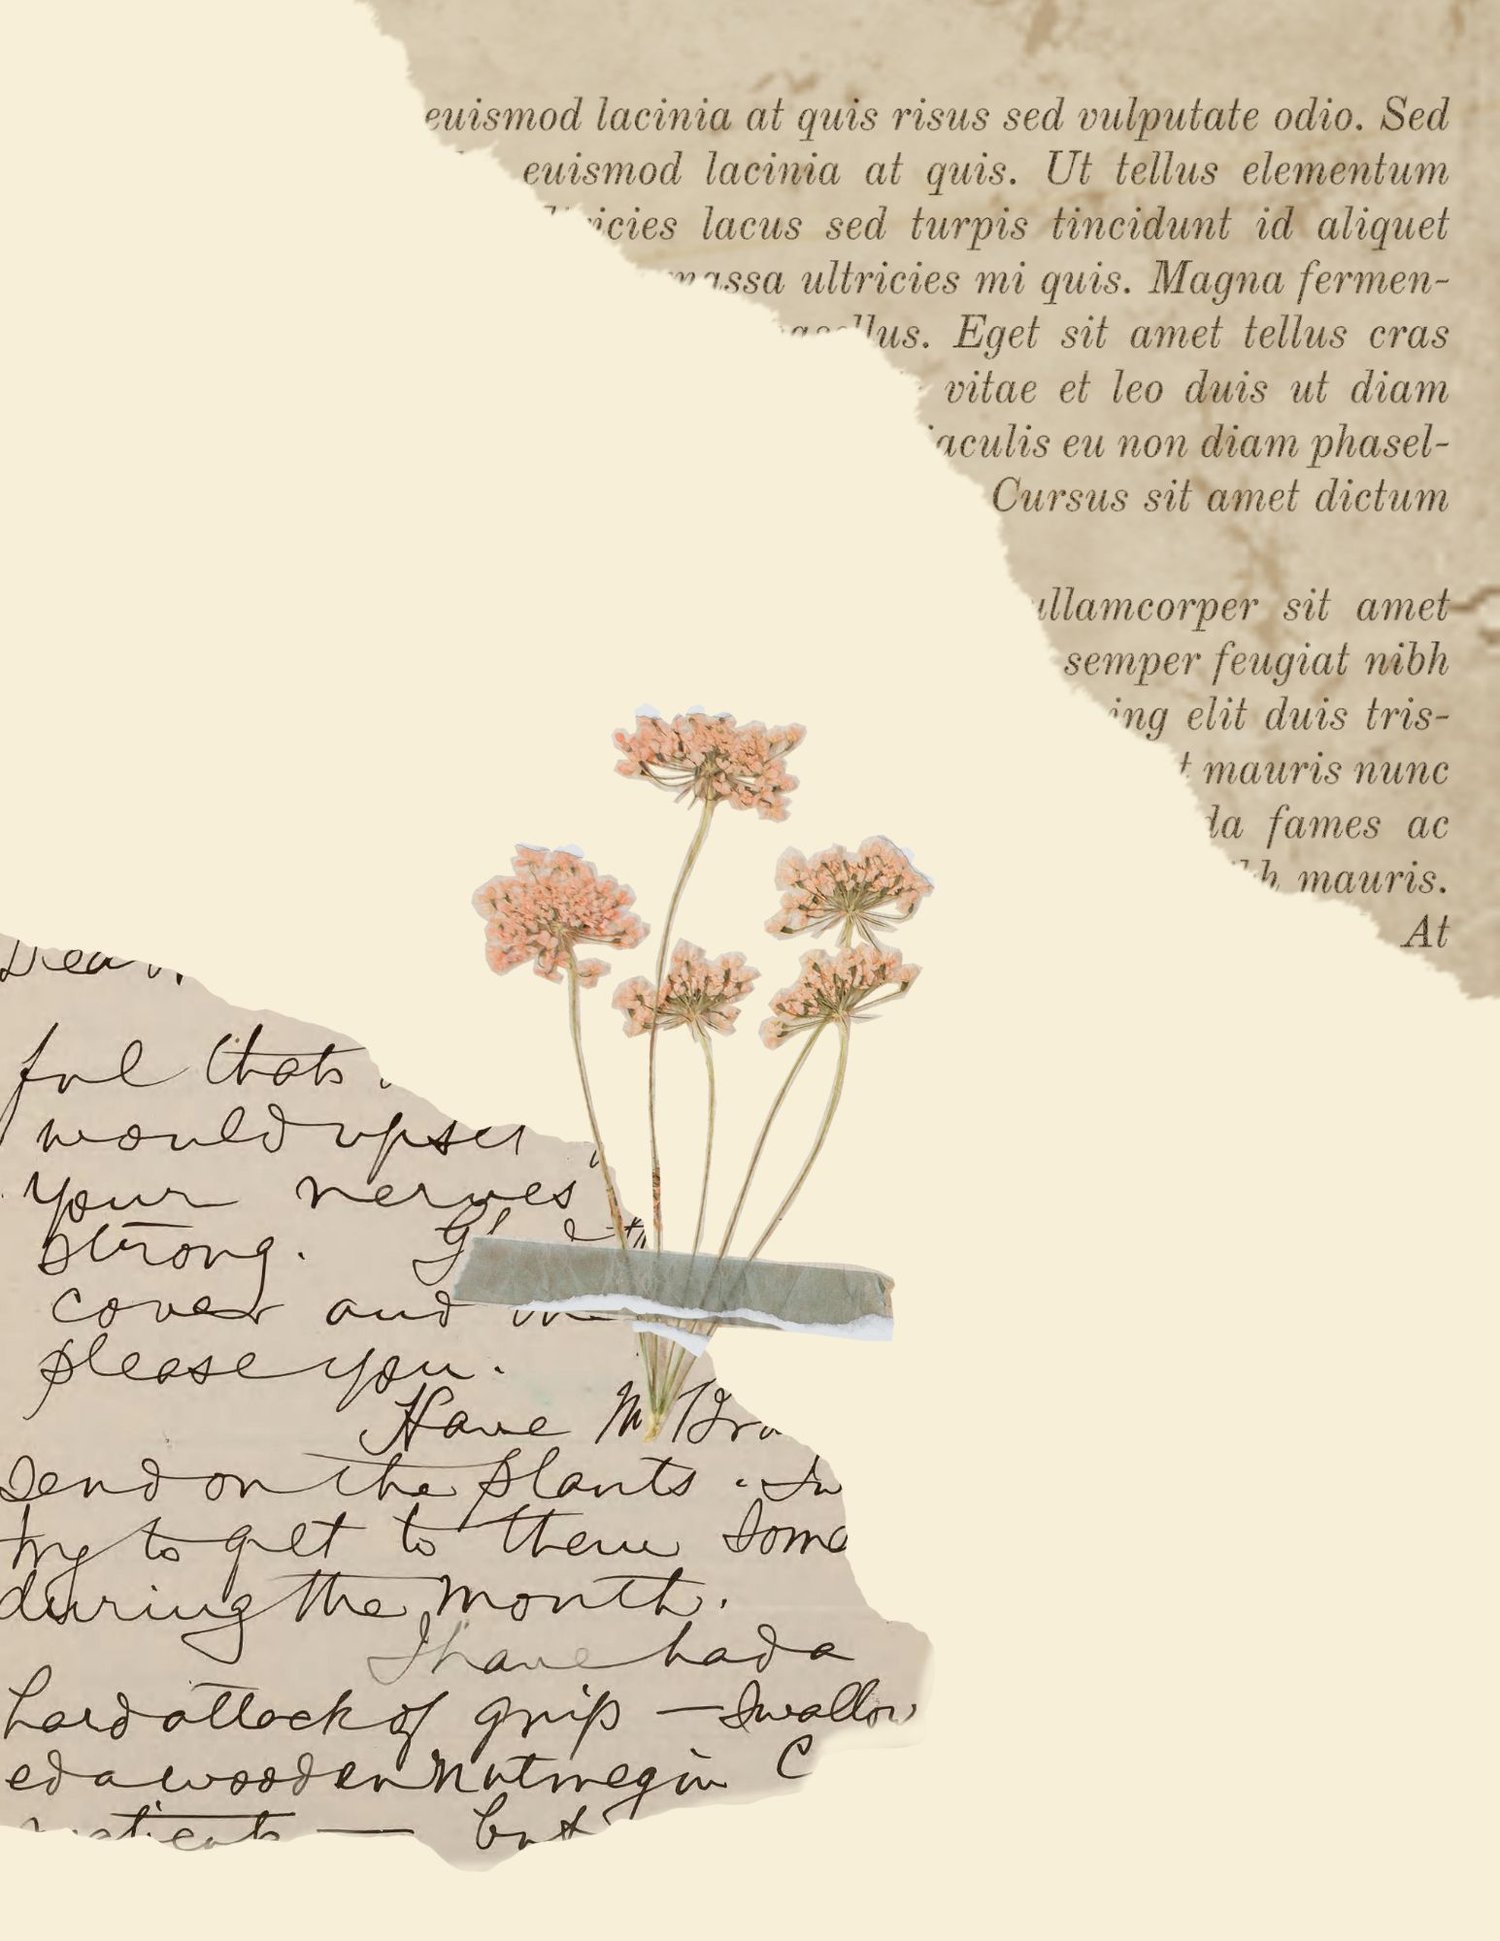 euismod lacinia at quis risus sed vulputate odio. Sed
euismod lacinia at quis. Ut tellus elementum
ricies lacus sed turpis tincidunt id aliquet
massa ultricies mi quis. Magna fermen-
llus. Eget sit amet tellus cras
vitae et leo duis ut diam
iaculis eu non diam phasel-
Cursus sit amet dictum
ullamcorper sit amet
semper feugiat nibh
ing elit duis tris-
mauris nunc
da fames ac
mauris.
At
Dear
ful thats
would upset
your nerves
strong.
cover and
please you.
Have Mr Bra
send on the plants.
try to get to them some
during the month.
I have had a
hard attack of grip — swallow
ed a wooden nutmeg in C
— but